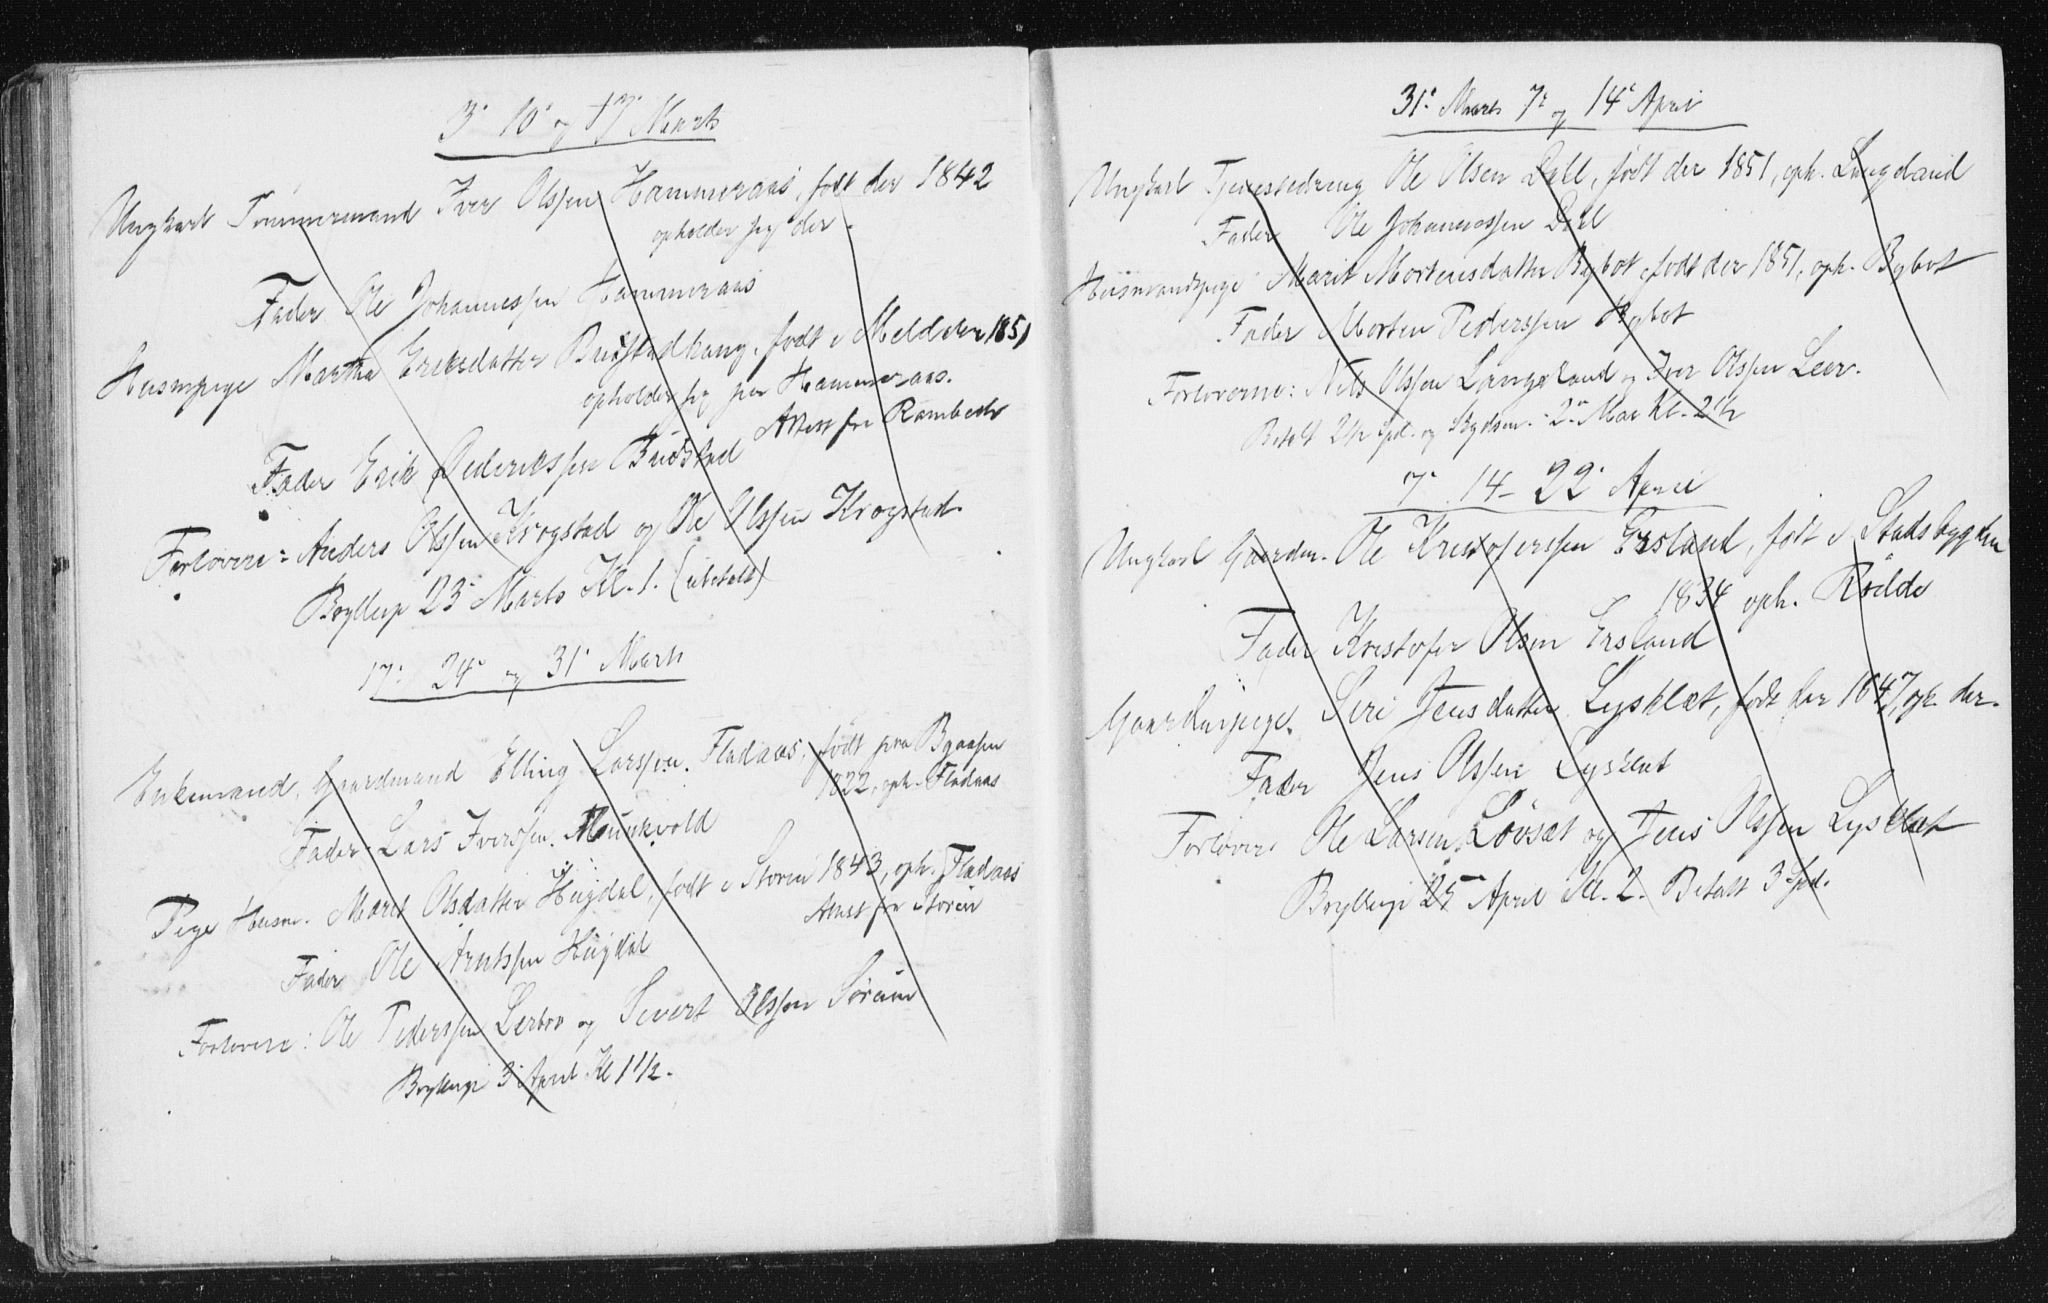 3' 10' og 17' Marts
Ungkarl Tømmermand Iver Olssen Hammeraas, født der 1842
opholder sig der.
Fader Ole Johannessen Hammeraas
Husmpige Martha Eriksdatter Budstadhaug, født i Meldalen 1851
opholder sig paa Hammeraas.
Attest fra Rambech
Fader Erik Pederikssen Budstad
Forlovere: Anders Olssen Krogstad og Ole Olssen Krogstad.
Bryllup 23' Marts Kl. 1. (ubetalt)
17' 24' og 31' Marts
Enkemand, Gaardmand Elling Larssen Fladaas, født paa Byaasen
1822, oph. Fladaas
Fader Lars Iverssen Munkvold
Pige Husm. Marit Olsdatter Hugdal, født i Støren 1843, oph. Fladaas
Attest fra Støren
Fader Ole Arntssen Hugdal
Forlovere: Ole Pederssen Lerbro og Sivert Olssen Sørum
Bryllup 3' April Kl 1 1/2.
31' Marts 7' og 14' April
Ungkarl Tjenestedreng Ole Olsen Dahl, født der 1851, oph. Langeland
Fader Ole Johannessen Dahl
Husmandspige Marit Mortensdatter Bybot født der 1851, oph. Bybot
Fader Morten Pederssen Bybot
Forloverne: Nils Olssen Langeland og Iver Olssen Leer.
Betalt 2 1/2 Spd. og Skydsen. 2' Mai Kl. 2 1/2
7' 14 - 22' April
Ungkarl Gaardm. Ole Kristoferssen Ersland, født i Stadsbygden
1834 oph. Røilde
Fader Kristofer Olsen Ersland
Gaardmpige. Siri Jensdatter Lysklæt, født her 1847, oph. der.
Fader Jens Olssen Lysklæt
Forlover Ole Larsen Løvsæt og Jens Olssen Lysklæt
Bryllup 25 April Kl. 2. Betalt 3 Spd.